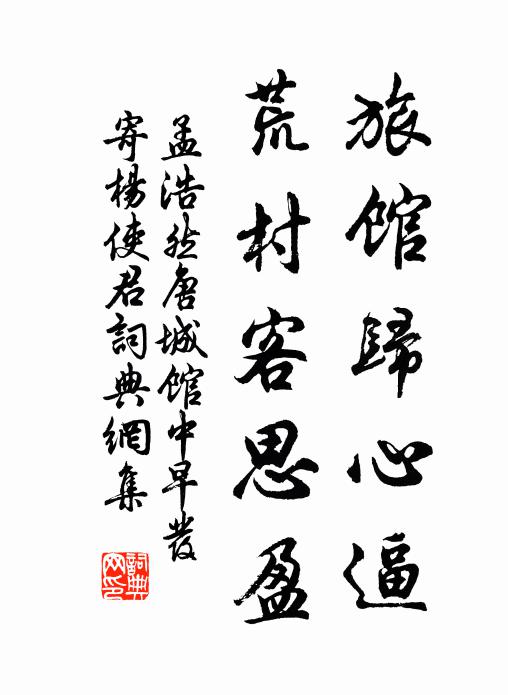 旅館歸心逼
荒村客思盈
孟浩然唐城館中早發
寄楊使君詞典網集
詞典
网印